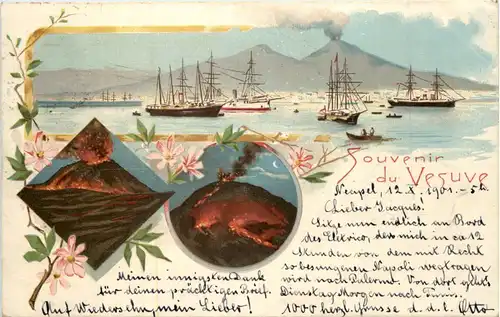 Souvenir
du Vesuve
Neapel, 12. X. 1901. - 5h
Lieber Jacques!
Sitze nun endlich an Bord
des Elektrico, der mich in ca 12
Stunden von dem mit Recht
so besungenen Napoli wegtragen
wird nach Palermo. Von dort geht's
Dienstag Morgen nach Tunis.
1000 herzl. Grüsse d. d. l. Otto
Meinen innigsten Dank
für deinen prächtigen Brief.
Auf Wiedersehn, mein Lieber!